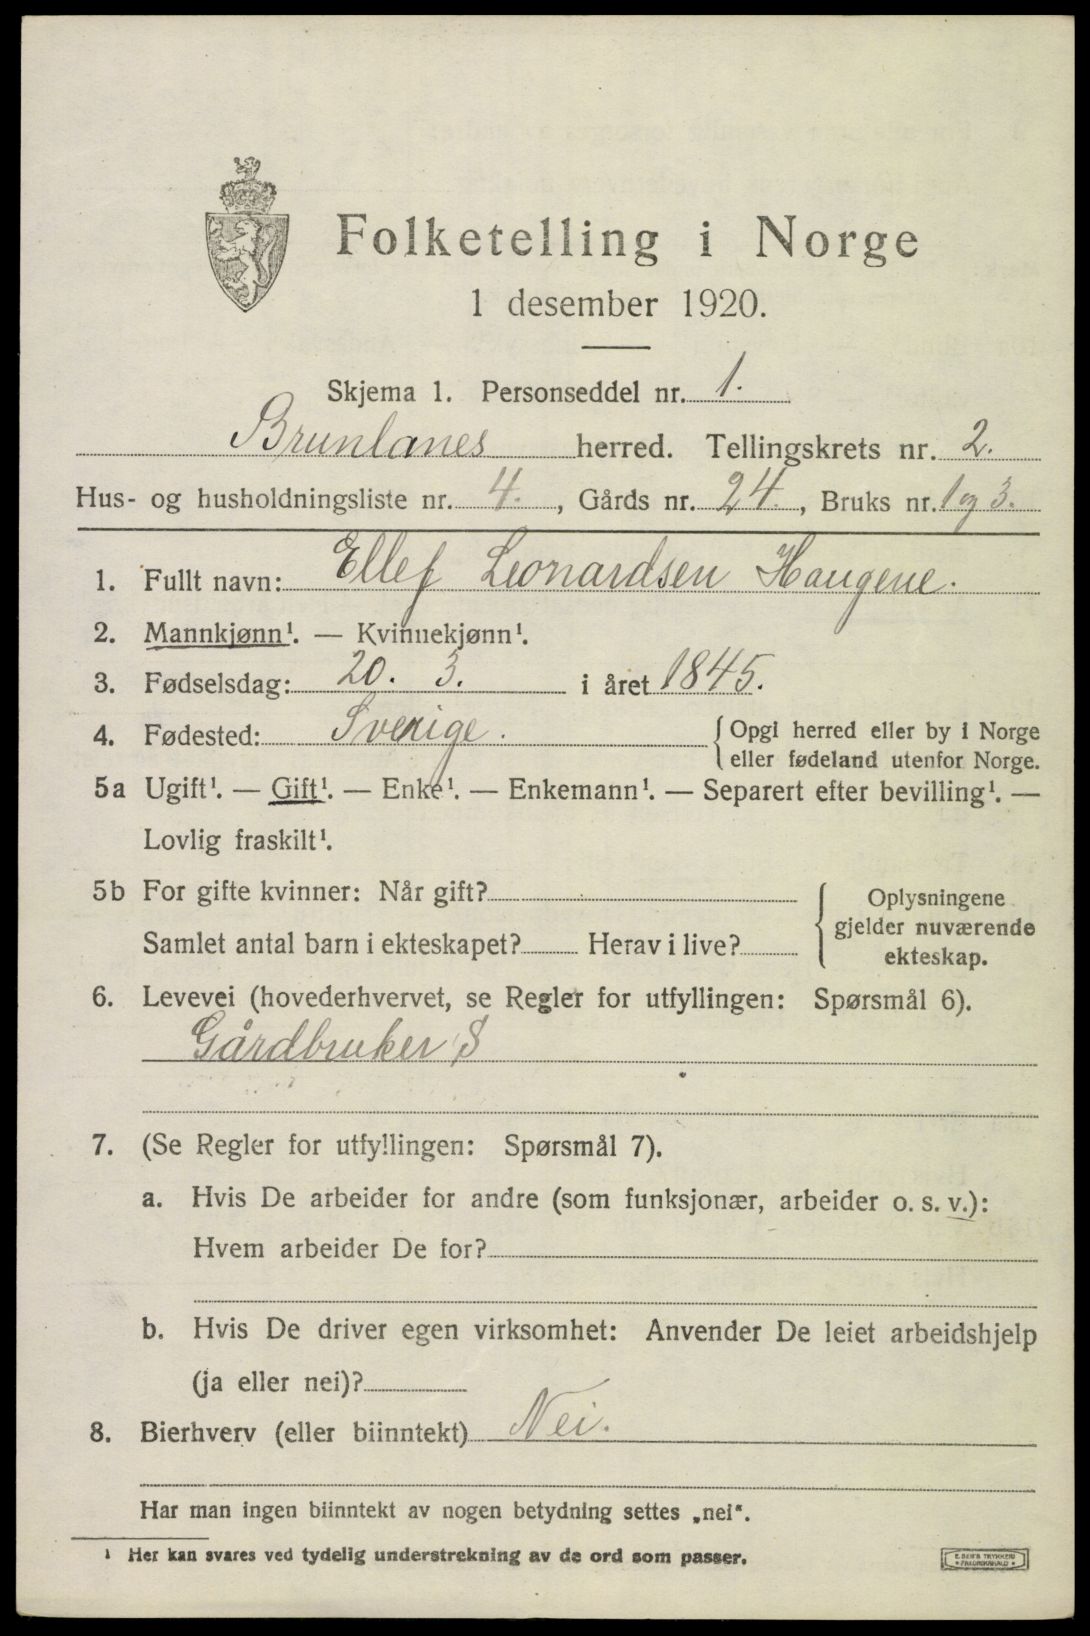 Folketelling i Norge
1 desember 1920.
Skjema 1. Personseddel nr. 1.
Brunlanes herred. Tellingskrets nr. 2.
Hus- og husholdningsliste nr. 4., Gårds nr. 24., Bruks nr. 1 og 3.
1. Fullt navn: Ellef Leonardsen Haugene.
2. Mannkjønn¹. — Kvinnekjønn¹.
3. Fødselsdag: 20. 3. i året 1845.
4. Fødested: Sverige. { Opgi herred eller by i Norge
eller fødeland utenfor Norge.
5a Ugift¹. — Gift¹. — Enke¹. — Enkemann¹. — Separert efter bevilling¹. —
Lovlig fraskilt¹.
5b For gifte kvinner: Når gift?
Samlet antal barn i ekteskapet? Herav i live?
{ Oplysningene
gjelder nuværende
ekteskap.
6. Levevei (hovederhvervet, se Regler for utfyllingen: Spørsmål 6).
Gårdbruker S
7. (Se Regler for utfyllingen: Spørsmål 7).
a. Hvis De arbeider for andre (som funksjonær, arbeider o. s. v.):
Hvem arbeider De for?
b. Hvis De driver egen virksomhet: Anvender De leiet arbeidshjelp
(ja eller nei)?
8. Bierhverv (eller biinntekt) Nei.
Har man ingen biinntekt av nogen betydning settes „nei“.
¹ Her kan svares ved tydelig understrekning av de ord som passer.